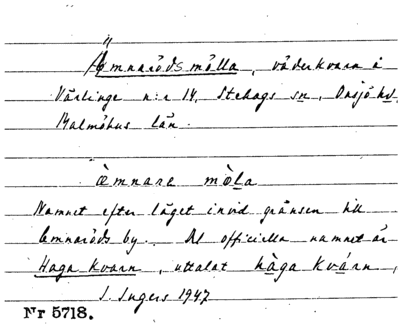 Ämnarödsmölla, väderkvarn å
Värlinge n:r 14, Stehags sn, Onsjö hd,
Malmöhus län.
æ̀mnare mö̀la
Namnet efter läget invid gränsen till
Emnaröds by. Det officiella namnet är
Haga kvarn, uttalat hàga kvárn,
I. Ingers 1947
Nr 5718.